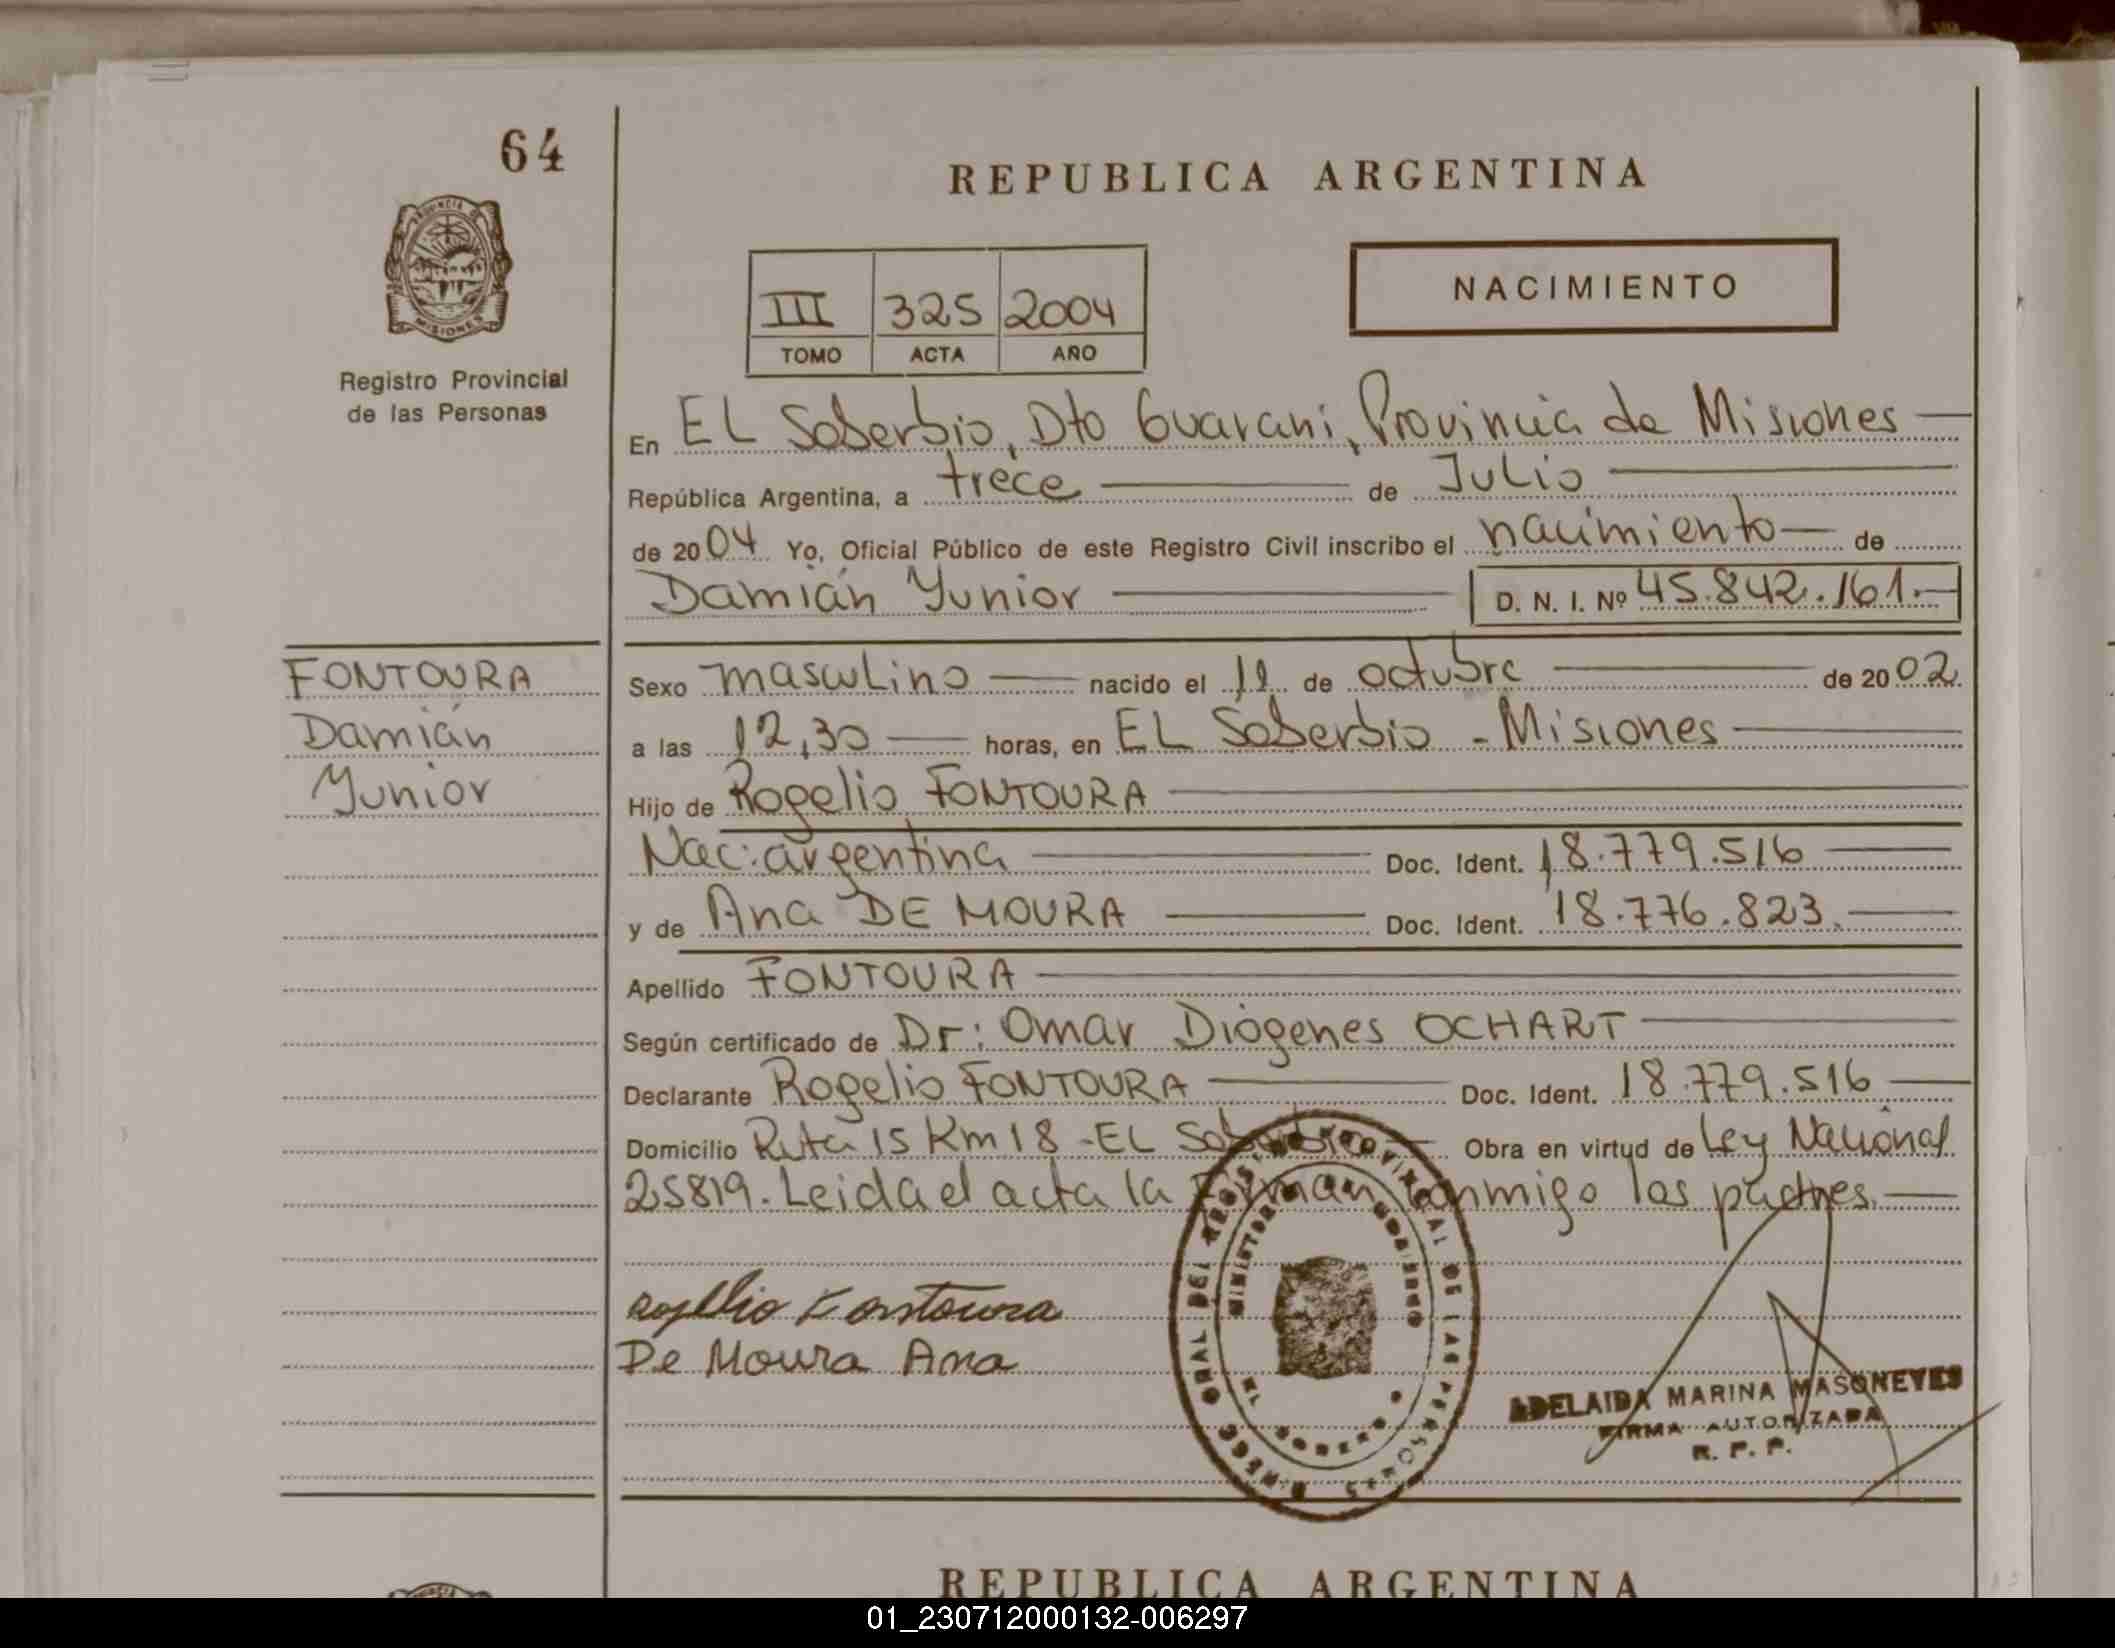 64
REPUBLICA ARGENTINA
PROVINCIA D
MISIONES
Registro Provincial
de las Personas
NACIMIENTO
III 325 2004
TOMO ACTA AÑO
En EL Soberbio, Dto Guarani, Provincia de Misiones
República Argentina, a trece de Julio
de 2004 Yo, Oficial Público de este Registro Civil inscribo el nacimiento de
Damián Yunior D. N. I. Nº 45.842.161.-
FONTOURA
Damián
Yunior
Sexo masculino nacido el 11 de octubre de 2002
a las 12,30 horas, en EL Soberbio - Misiones
Hijo de Rogelio FONTOURA
Nac: argentina Doc. Ident. 18.779.516
y de Ana DE MOURA Doc. Ident. 18.776.823.
Apellido FONTOURA
Según certificado de Dr: Omar Diógenes OCHART
Declarante Rogelio FONTOURA Doc. Ident. 18.779.516
Domicilio Ruta 15 Km 18 - EL Soberbio Obra en virtud de Ley Nacional
25819. Leida el acta la Firman conmigo los padres.
Rogelio Fontoura
De Moura Ana
GRAL DEL REGISTRO PROVINCIAL DE LAS PERSONAS
MINISTERIO DE GOBIERNO
ADELAIDA MARINA MASONEVES
FIRMA AUTORIZADA
R. P. P.
REPUBLICA ARGENTINA
01_230712000132-006297